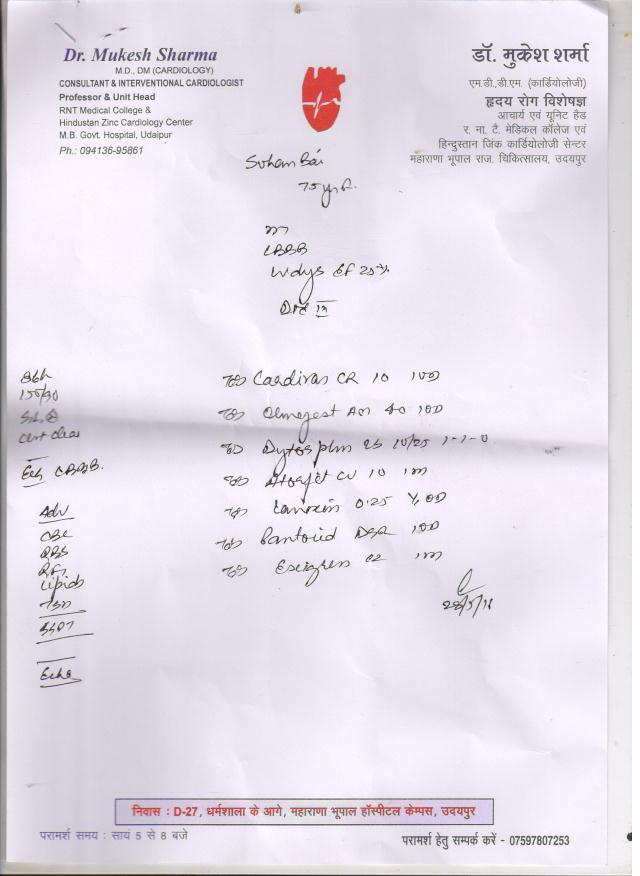 Dr. Mukesh Sharma
M.D., DM (CARDIOLOGY)
CONSULTANT & INTERVENTIONAL CARDIOLOGIST
Professor & Unit Head
RNT Medical College &
Hindustan Zinc Cardiology Center
M.B. Govt. Hospital, Udaipur
Ph.: 094136-95861
डॉ. मुकेश शर्मा
एम.डी.,डी.एम. (कार्डियोलोजी)
हृदय रोग विशेषज्ञ
आचार्य एवं यूनिट हैड
र. ना. टै. मेडिकल कॉलेज एवं
हिन्दुस्तान जिंक कार्डियोलोजी सेन्टर
महाराणा भूपाल राज. चिकित्सालय, उदयपुर
Sohan Bai
75 yr
LBBB
EF 25%
150/90
Chest clear
LBBB
Adv
CBC
RBS
RFT
Lipids
TSH
SGPT
Echo
Cardivas CR 10 1 OD
Olmezest AM 40 1 OD
Dytor plus 10/25 1-1-0
CV 10
Lanoxin 0.25 ½ OD
Pantocid DSR 1 OD
निवास : D-27, धर्मशाला के आगे, महाराणा भूपाल हॉस्पीटल केम्पस, उदयपुर
परामर्श समय : सायं 5 से 8 बजे
परामर्श हेतु सम्पर्क करें - 07597807253